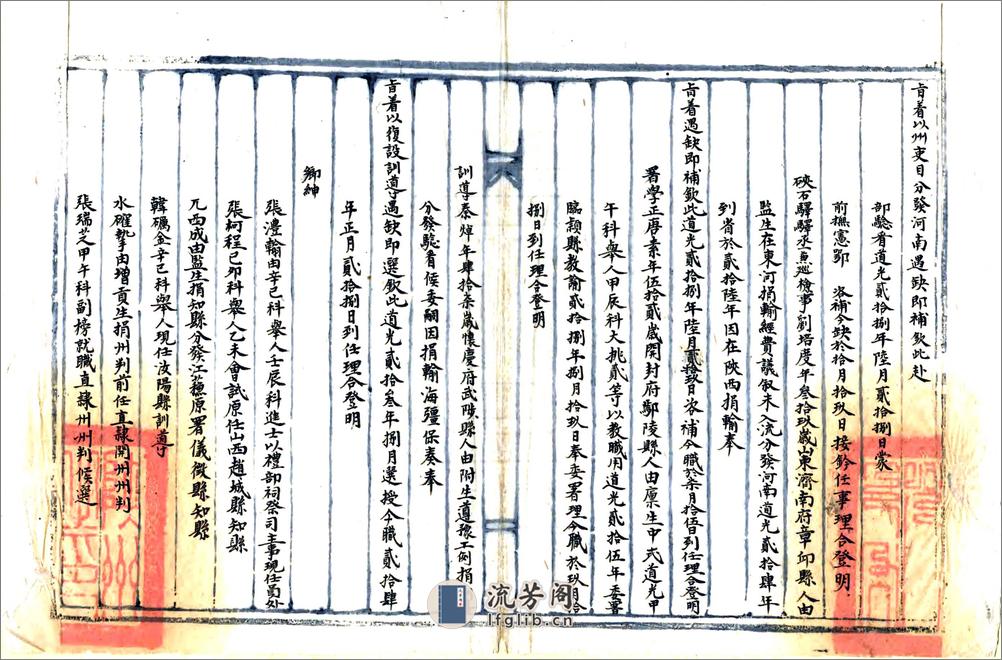 旨着以州吏目分發河南遇缺即補欽此赴
部驗看道光貳拾捌年陸月貳拾捌日蒙
前撫憲鄂 洛補今缺於拾月拾玖日接鈐任事理合登明
硤石驛驛丞兼巡檢事劉培度年叁拾玖歲山東濟南府章邱縣人由
監生在東河捐輸經費議叙未入流分發河南道光貳拾肆年
到省於貳拾陸年因在陝西捐輸奉
旨着遇缺即補欽此道光貳拾捌年陸月貳拾玖日咨補今職於柒月拾伍日到任理合登明
署學正唐素年伍拾貳歲開封府鄢陵縣人由廪生中式道光甲
午科舉人甲辰科大挑貳等以教職用道光貳拾伍年委署
臨潁縣教諭貳拾捌年捌月拾玖日奉委署理今職於玖月拾
捌日到任理合登明
訓導秦焯年肆拾柒歲懷慶府武陟縣人由附生遵豫工例捐
分發驗看候委嗣因捐輸海疆保奏奉
旨着以復設訓導遇缺即選欽此道光貳拾叁年捌月選授今職貳拾肆
年正月貳拾捌日到任理合登明
鄉紳
張澧翰由辛巳科舉人壬辰科進士以禮部祠祭司主事現任員外
張柯程己卯科舉人乙未會試原任山西趙城縣知縣
兀西成由監生捐知縣分發江蘇原署儀徵縣知縣
韓礪金辛巳科舉人現任汝陽縣訓導
水確摯由增貢生捐州判前任直隷開州州判
張瑞芝甲午科副榜就職直隷州州判候選
流芳阁
lfglib.cn